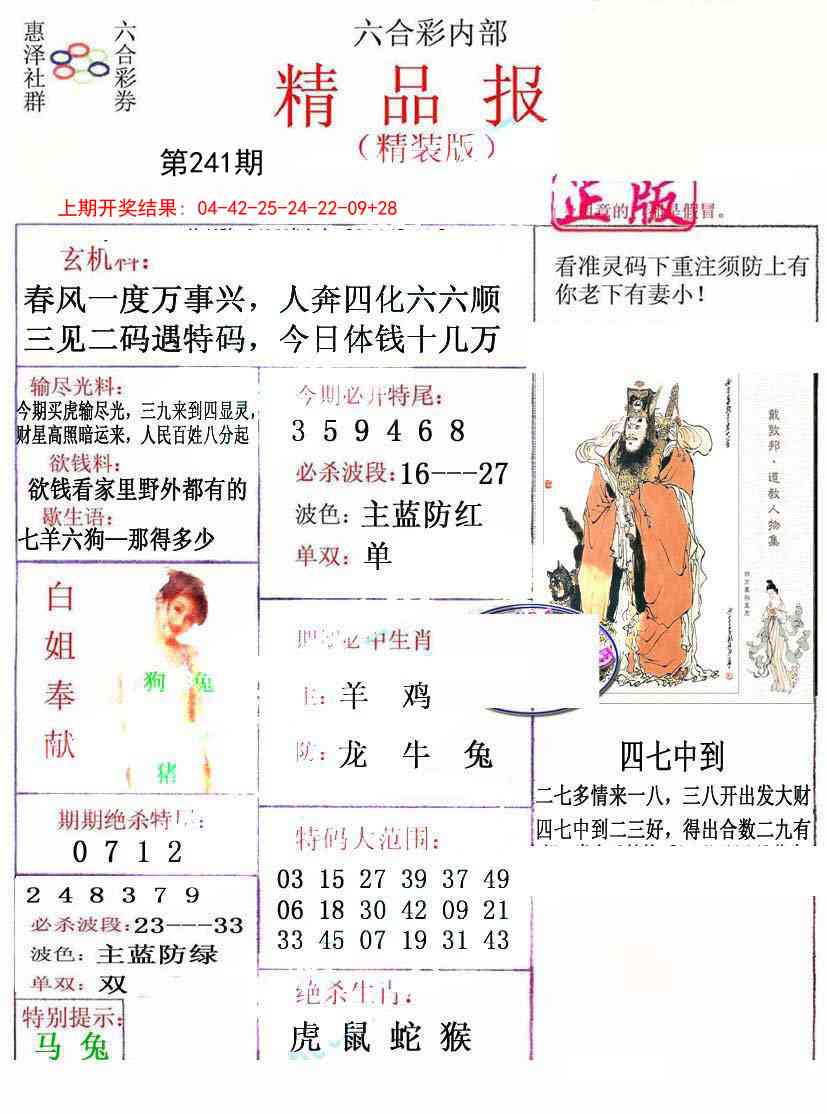 惠泽社群
六合彩券
六合彩内部
精品报
（精装版）
第241期
上期开奖结果：04-42-25-24-22-09+28
正版
假冒。
玄机料：
春风一度万事兴，人奔四化六六顺
三见二码遇特码，今日体钱十几万
看准灵码下重注须防上有
你老下有妻小！
输尽光料：
今期买虎输尽光，三九来到四显灵，
财星高照暗运来，人民百姓八分起
欲钱料：
欲钱看家里野外都有的
歇生语：
七羊六狗—那得多少
今期必开特尾：
3 5 9 4 6 8
必杀波段：16---27
波色：主蓝防红
单双：单
戴敦邦·道教人物集
白姐奉献
狗 兔
猪
期期必中生肖
主：羊 鸡
防：龙 牛 兔
四七中到
二七多情来一八，三八开出发大财
四七中到二三好，得出合数二九有
期期绝杀特尾：
0 7 1 2
特码大范围：
03 15 27 39 37 49
06 18 30 42 09 21
33 45 07 19 31 43
2 4 8 3 7 9
必杀波段：23---33
波色：主蓝防绿
单双：双
特别提示：
马 兔
绝杀生肖：
虎 鼠 蛇 猴